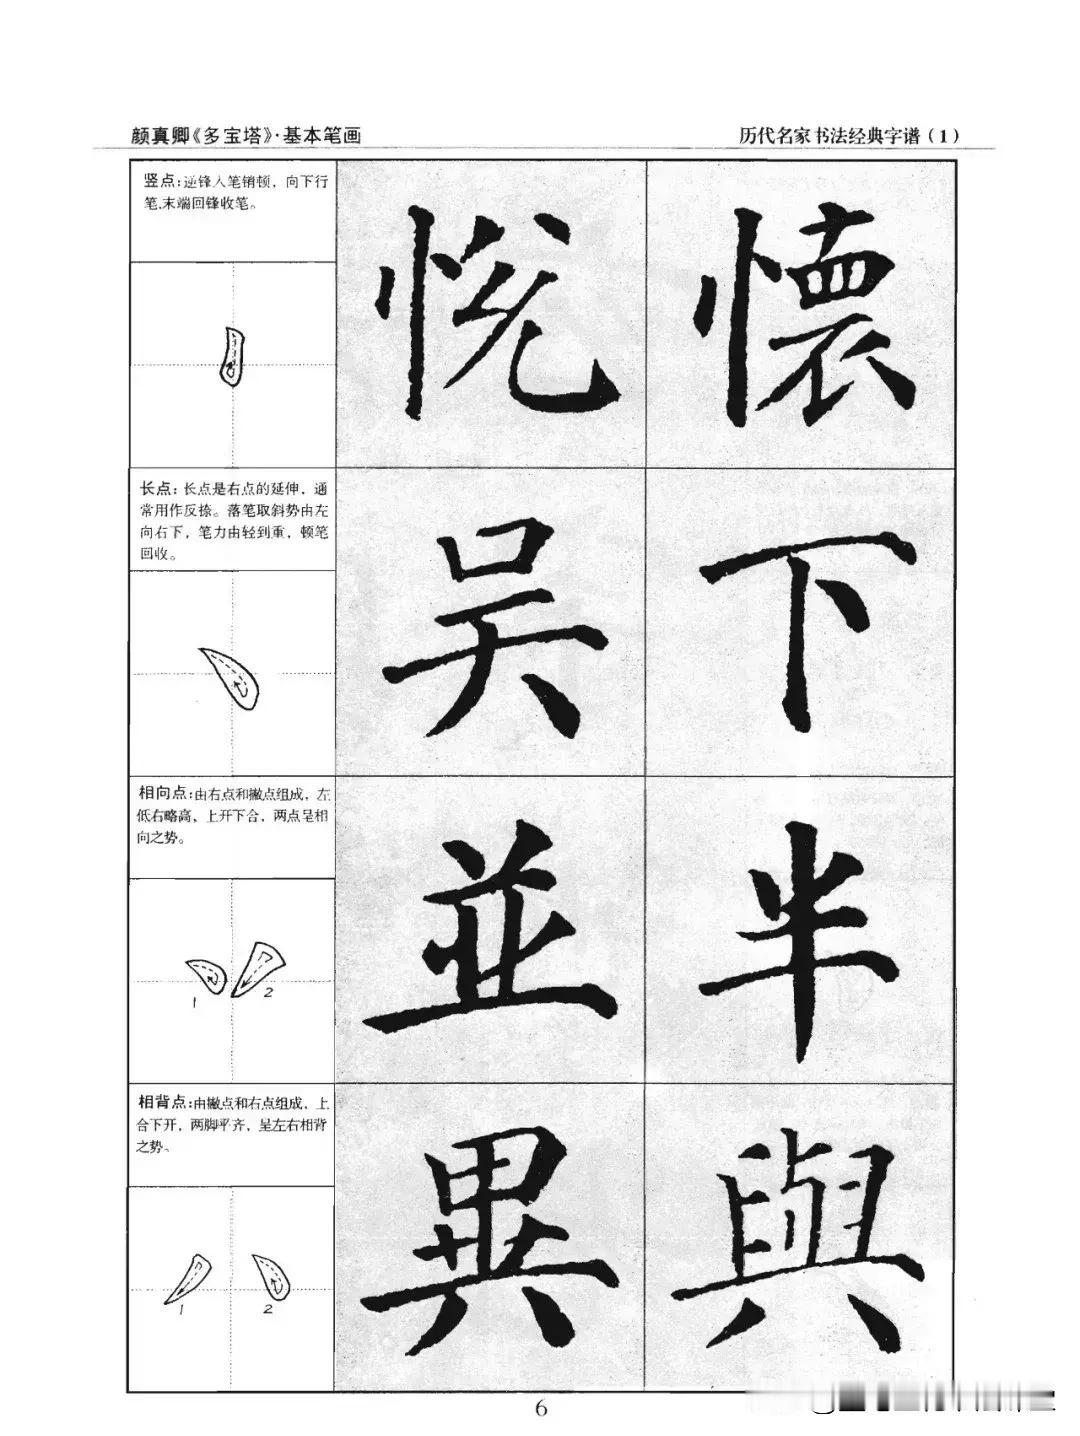 颜真卿《多宝塔》·基本笔画
历代名家书法经典字谱（1）
竖点：逆锋入笔销顿，向下行
笔，末端回锋收笔。
恱 懷
长点：长点是右点的延伸，通
常用作反捺。落笔取斜势由左
向右下，笔力由轻到重，顿笔
回收。
吴 下
相向点：由右点和撇点组成，左
低右略高，上开下合，两点呈相
向之势。
1 2
並 半
相背点：由撇点和右点组成，上
合下开，两脚平齐，呈左右相背
之势。
1 2
異 與
6